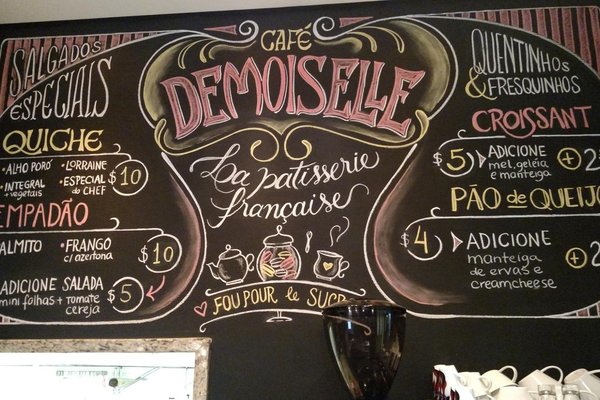 SALGADOS
ESPECIAIS
QUICHE
• ALHO PORÓ
• INTEGRAL
+ vegetais
• LORRAINE
• ESPECIAL
do CHEF
$10
EMPADÃO
PALMITO
• FRANGO
c/ azeitona
$10
ADICIONE SALADA
mini folhas + tomate
cereja
$5
CAFÉ
DEMOISELLE
La patisserie
française
FOU POUR le SUCRE
QUENTINHOS
& FRESQUINHOS
CROISSANT
$5
ADICIONE
mel, geléia
e manteiga
+2
PÃO de QUEIJO
$4
ADICIONE
manteiga
de ervas e
creamcheese
+2